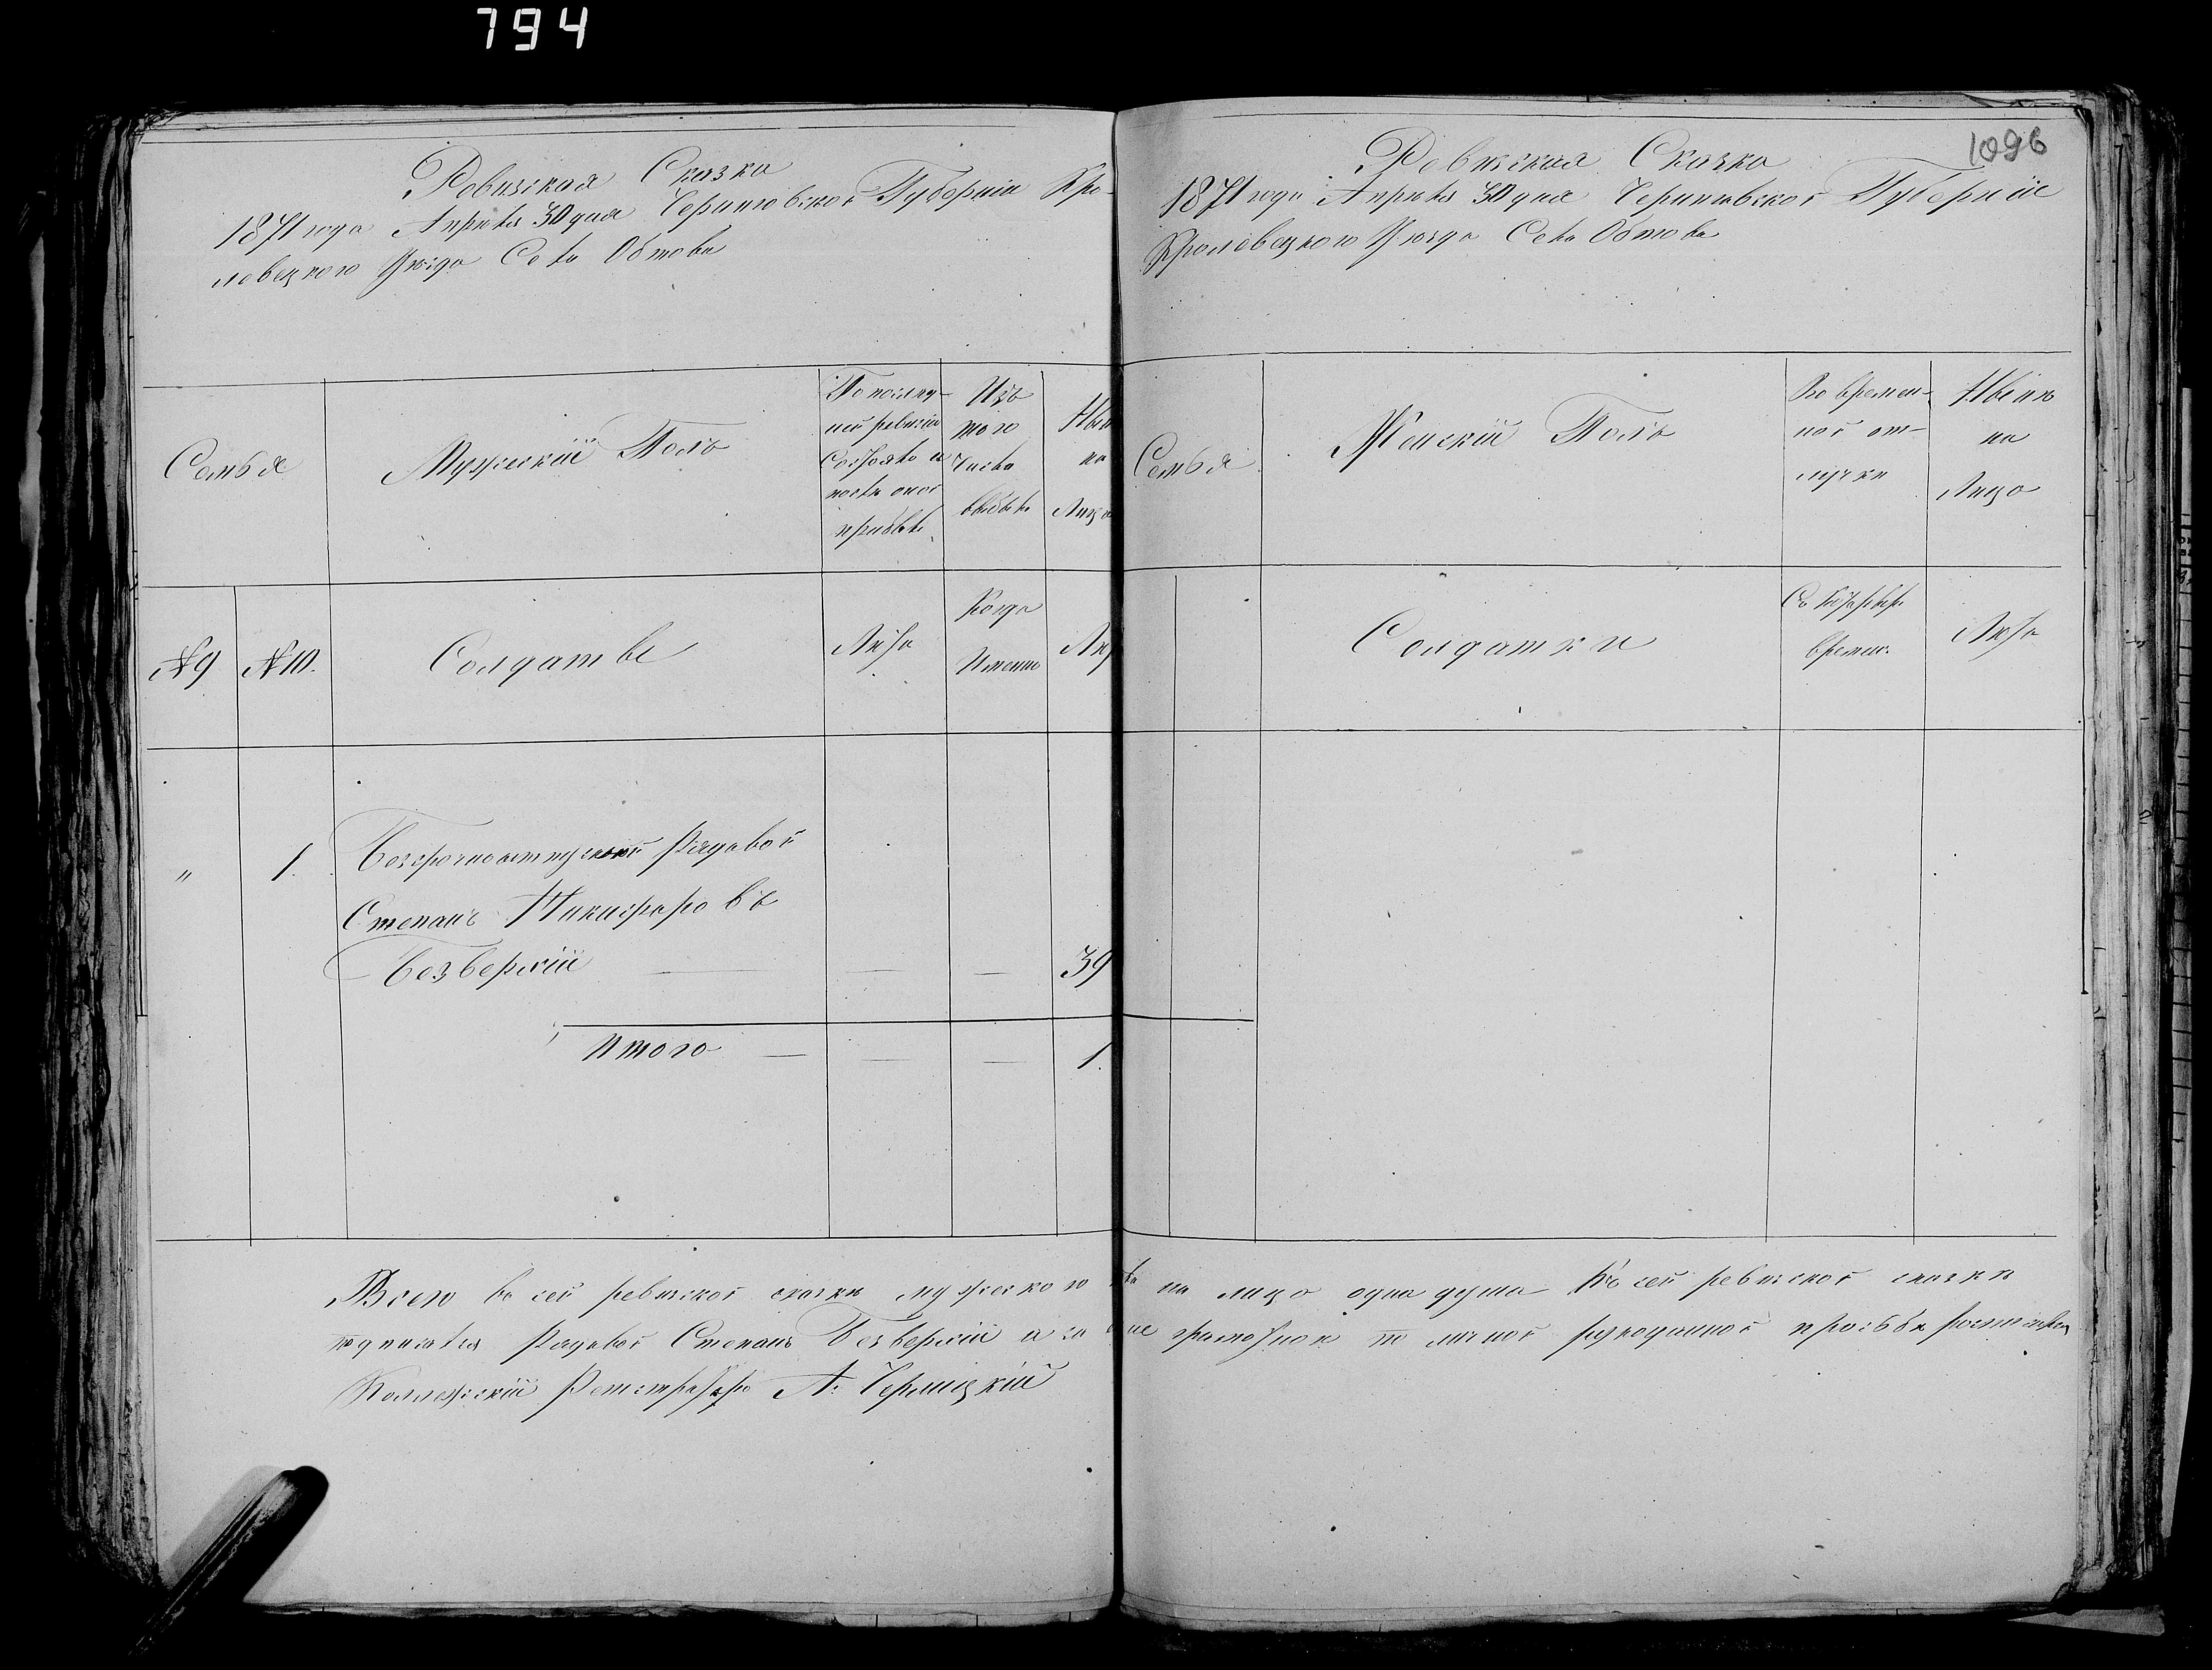 794
Ревизская Сказка
1871 года Апреля 30 дня Черниговской Губернии Кро-
левецкого Уезда Села Обтова
Семья
Мужеский Полъ
По послед-
ней ревизии
Состояло и
после оной
прибыло
Изъ
того
числа
выбыло
Ныне
на
Лицо
№ 9
№ 10.
Солдаты
Лета
Когда
Именно
Лет
"
1.
Безсрочноотпускной Рядовой
Степанъ Никифоровъ
Безверхий — — — 39
Итого — — — 1.
1096
Ревизская Сказка
1871 года Апреля 30 дня Черниговской Губернии
Кролевецкого Уезда Села Обтова
Семья
Женский Полъ
Во времен-
ной от-
лучке
Ныне
на
Лицо
Солдатки
Съ котораго
времен:
Лета
Всего въ сей ревизской сказке мужеского на лицо одна душа Къ сей ревизской сказки
подписался Рядовой Степанъ Безверхий а за не грамотного личной рукоданной просьбе
Коллежский Регистраторъ А.